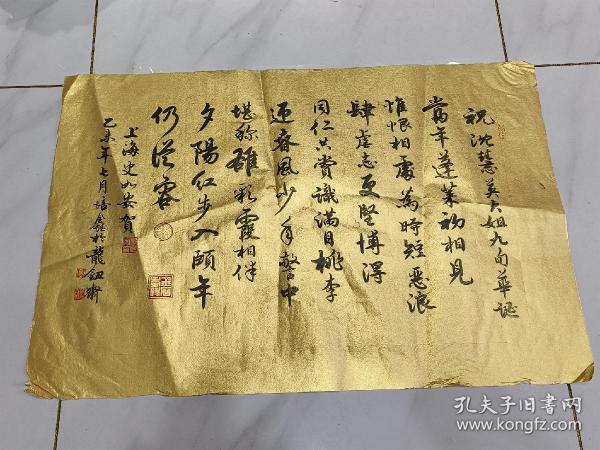 祝沈慧英大姐九旬華誕
當年蓬萊初相見
惟恨相處為時短惡浪
肆虐志更堅博得
同仁共賞識滿目桃李
迎春風少年警中
堪称雄彩霞相伴
夕陽红步入頤年
仍從容
上海史如安賀
乙未年七月培鑫於龍鈕齋
孔夫子旧书网
www.kongfz.com